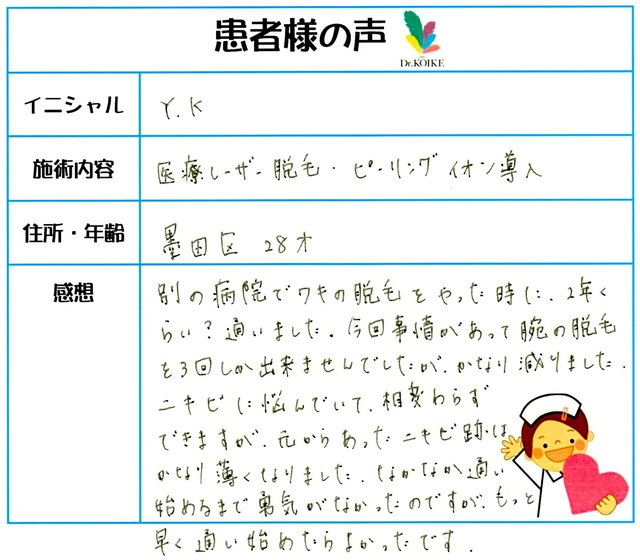 患者様の声
Dr.KOIKE
イニシャル
Y.K
施術内容
医療レーザー脱毛・ピーリングイオン導入
住所・年齢
墨田区 28才
感想
別の病院でワキの脱毛をやった時に、2年く
らい?通いました。今回事情があって腕の脱毛
を3回しか出来ませんでしたが、かなり減りました。
ニキビに悩んでいて、相変わらず
できますが、元からあったニキビ跡は
かなり薄くなりました。なかなか通い
始めるまで勇気がなかったのですが、もっと
早く通い始めたらよかったです。